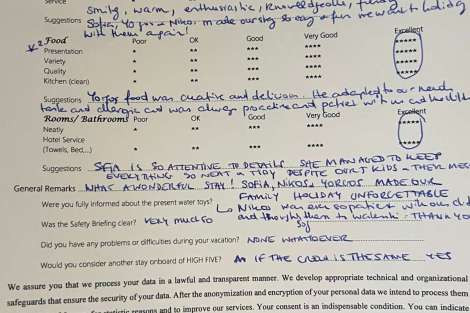 Service
smily, warm, enthusiastic,
Suggestions Sofia, Yorgos + Nikos made our stay so easy + fun we want to holiday
with them again!
Food Poor OK Good Very Good Excellent
Presentation * ** *** **** *****
Variety * ** *** **** *****
Quality * ** *** **** *****
Kitchen (clean) * ** *** **** *****
Suggestions Yorgos food was creative and delicious. He adapted to our needs
taste and allergies and was always proactive and patient with us and
Rooms/ Bathrooms Poor OK Good Very Good Excellent
Neatly * ** *** **** *****
Hotel Service
(Towels, Bed,..) * ** *** ****
Suggestions SOFIA IS SO ATTENTIVE TO DETAILS SHE MANAGED TO KEEP
EVERYTHING SO NEAT + TIDY DESPITE OUR 7 KIDS + THEIR MESS
General Remarks WHAT A WONDERFUL STAY! SOFIA, NIKOS + YORGOS MADE OUR
FAMILY HOLIDAY UNFORGETTABLE
Were you fully informed about the present water toys? Nikos was even so patient with our
Was the Safety Briefing clear? very much so and taught them to THANK YO
Did you have any problems or difficulties during your vacation? NONE WHATSOEVER
Would you consider another stay onboard of HIGH FIVE? IF THE CREW IS THE SAME YES
We assure you that we process your data in a lawful and transparent manner. We develop appropriate technical and organizational
safeguards that ensure the security of your data. After the anonymization and encryption of your personal data we intend to process them
reasons and to improve our services. Your consent is an indispensable condition. You can indicate